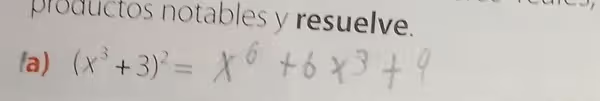 productos notables y resuelve.
a) (x³ + 3)² = x⁶ + 6x³ + 9